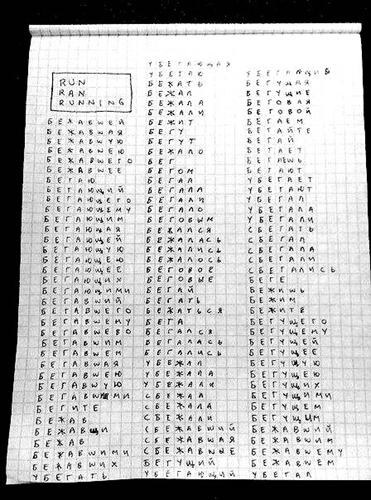 RUN
RAN
RUNNING
БЕЖАВШЕЙ
БЕЖАВШАЯ
БЕЖАВШУЮ
БЕЖАВШЕЮ
БЕЖАВШЕГО
БЕЖАВШЕЕ
БЕГАЮ
БЕГАЮЩИЙ
БЕГАЮЩЕГО
БЕГАЮЩЕМУ
БЕГАЮЩИМ
БЕГАЮЩАЯ
БЕГАЮЩЕЙ
БЕГАЮЩУЮ
БЕГАЮЩЕЮ
БЕГАЮЩЕЕ
БЕГАЮЩИХ
БЕГАЮЩИМИ
БЕГАВШИЙ
БЕГАВШЕГО
БЕГАВШЕМУ
БЕГАВШЕГО
БЕГАВШИМ
БЕГАВШЕМ
БЕГАВШАЯ
БЕГАВШЕЮ
БЕГАВШУЮ
БЕГАВШИМИ
БЕГИТЕ
БЕЖАВ
БЕЖАВШИ
БЕЖАВ
БЕЖАВШИМИ
БЕЖАВШИХ
УБЕГАТЬ
УБЕГАЮЩАЯ
УБЕГАЮ
БЕЖАТЬ
БЕЖАЛ
БЕЖАЛА
БЕЖАЛИ
БЕЖИТ
БЕГУ
БЕГУТ
БЕЖАЛО
БЕГ
БЕГОМ
БЕГАЛ
БЕГАЛА
БЕГАЛИ
БЕГАЛО
БЕГОВЫМ
БЕЖАЛСЯ
БЕЖАЛАСЬ
БЕЖАЛИСЬ
БЕЖАЛОСЬ
БЕГОВОЕ
БЕГОВЫЕ
БЕГАЙ
БЕГАТЬ
БЕЖАТЬСЯ
БЕГА
БЕГАЛСЯ
БЕГАЛАСЬ
БЕГАЛИСЬ
УБЕЖАЛ
УБЕЖАЛА
УБЕЖАЛИ
СБЕЖАЛ
СБЕЖАЛА
СБЕЖАЛИ
СБЕЖАВШИЙ
СБЕЖАВШАЯ
СБЕЖАВШИЕ
БЕГУЩИЙ
УБЕГАЮЩИЙ
УБЕГАЮЩИЕ
БЕГУЩАЯ
БЕГУЩИЕ
БЕГОВАЯ
БЕГОВОЙ
БЕГАЕМ
БЕГАЙТЕ
БЕГАЙ
БЕГАЕТ
БЕГАЕШЬ
БЕГАЮТ
УБЕГАЕТ
УБЕГАЮТ
УБЕГАЛ
УБЕГАЛА
УБЕГАЛИ
СБЕГАТЬ
СБЕГАЛ
СБЕГАЛА
СБЕГАЛИ
СБЕГАЛИСЬ
БЕГЕ
БЕЖИШЬ
БЕЖИМ
БЕЖИТЕ
БЕГУЩЕГО
БЕГУЩЕМУ
БЕГУЩЕЙ
БЕГУЩЕЕ
БЕГУЩУЮ
БЕГУЩЕЮ
БЕГУЩИХ
БЕГУЩИМИ
БЕГУЩЕМ
БЕГУЩИМ
БЕЖАВШИЙ
БЕЖАВШИМ
БЕЖАВШЕМУ
БЕЖАВШЕМ
УБЕГАЛ